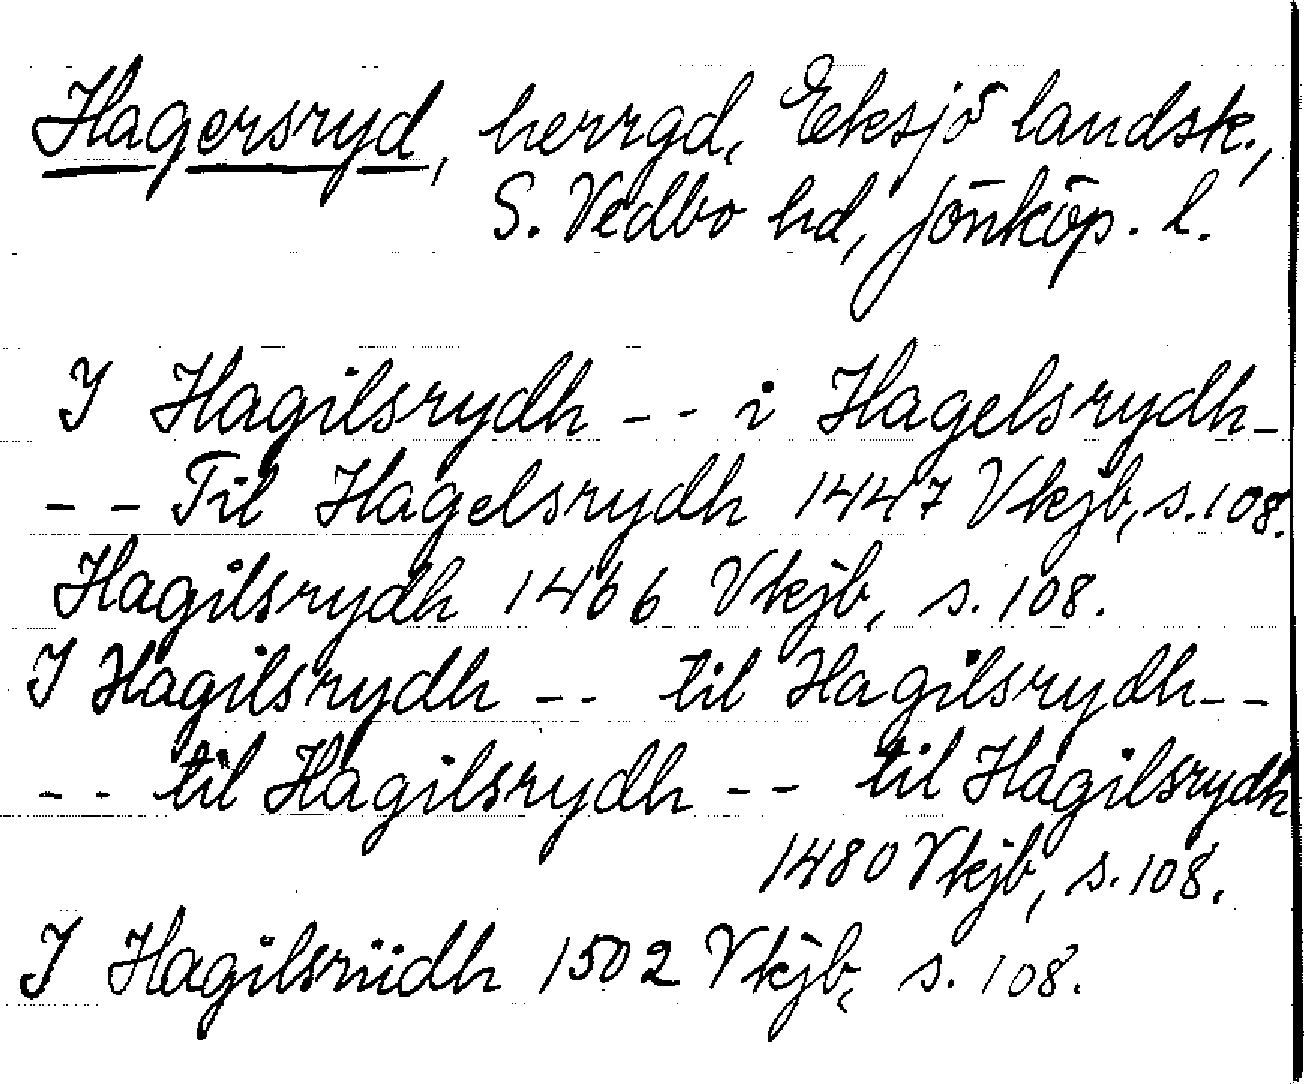 Hagersryd, herrgd, Eksjö landsk.,
S. Vedbo hd, Jönköp. l.
I Hagilsrydh -- i Hagelsrydh-
-- Til Hagelsrydh 1447 Vkjb, s. 108.
Hagilsrydh 1466 Vkjb, s. 108.
I Hagilsrydh -- til Hagilsrydh--
-- til Hagilsrydh -- til Hagilsrydh
1480 Vkjb, s. 108.
I Hagilsrüdh 1502 Vkjb, s. 108.